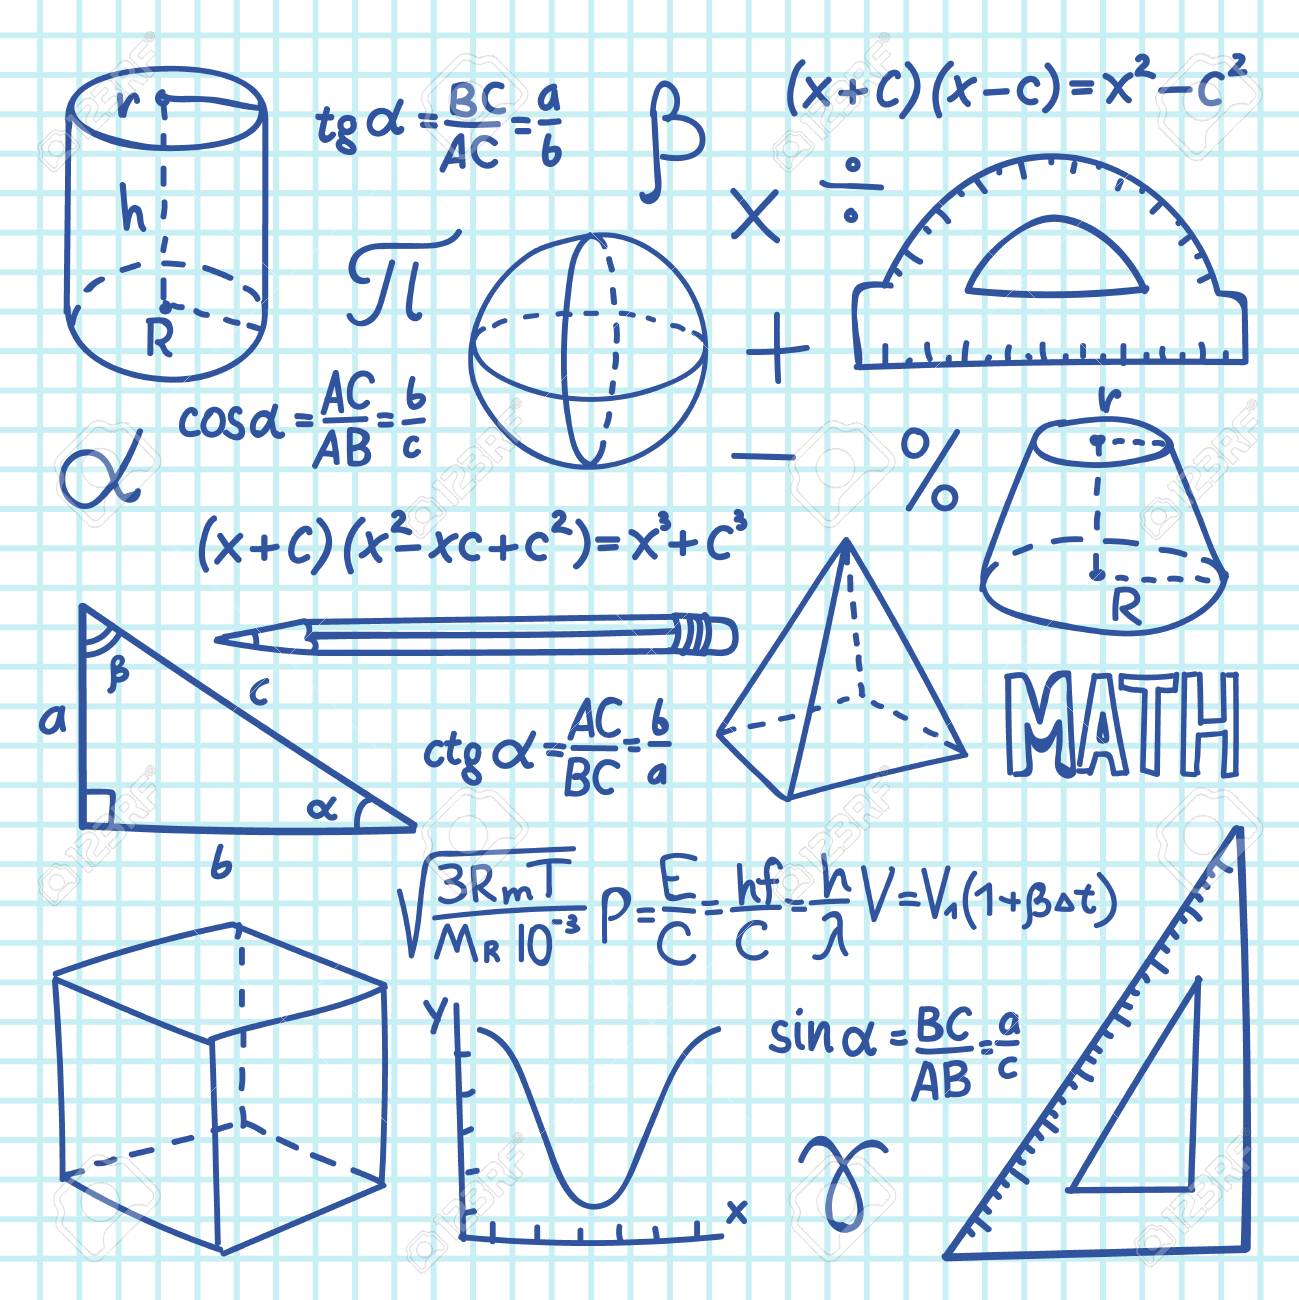 r
h
R
tg α = BC/AC = a/b
β
(x+c)(x-c)=x²-c²
×
÷
π
+
cos α = AC/AB = b/c
α
−
%
r
R
(x+c)(x²-xc+c²)=x³+c³
β
a
c
α
b
ctg α = AC/BC = b/a
MATH
√(3RmT/MR 10⁻³)
P = E/C = hf/C = h/λ
V=V₁(1+βΔt)
y
x
sin α = BC/AB = a/c
γ
123RF